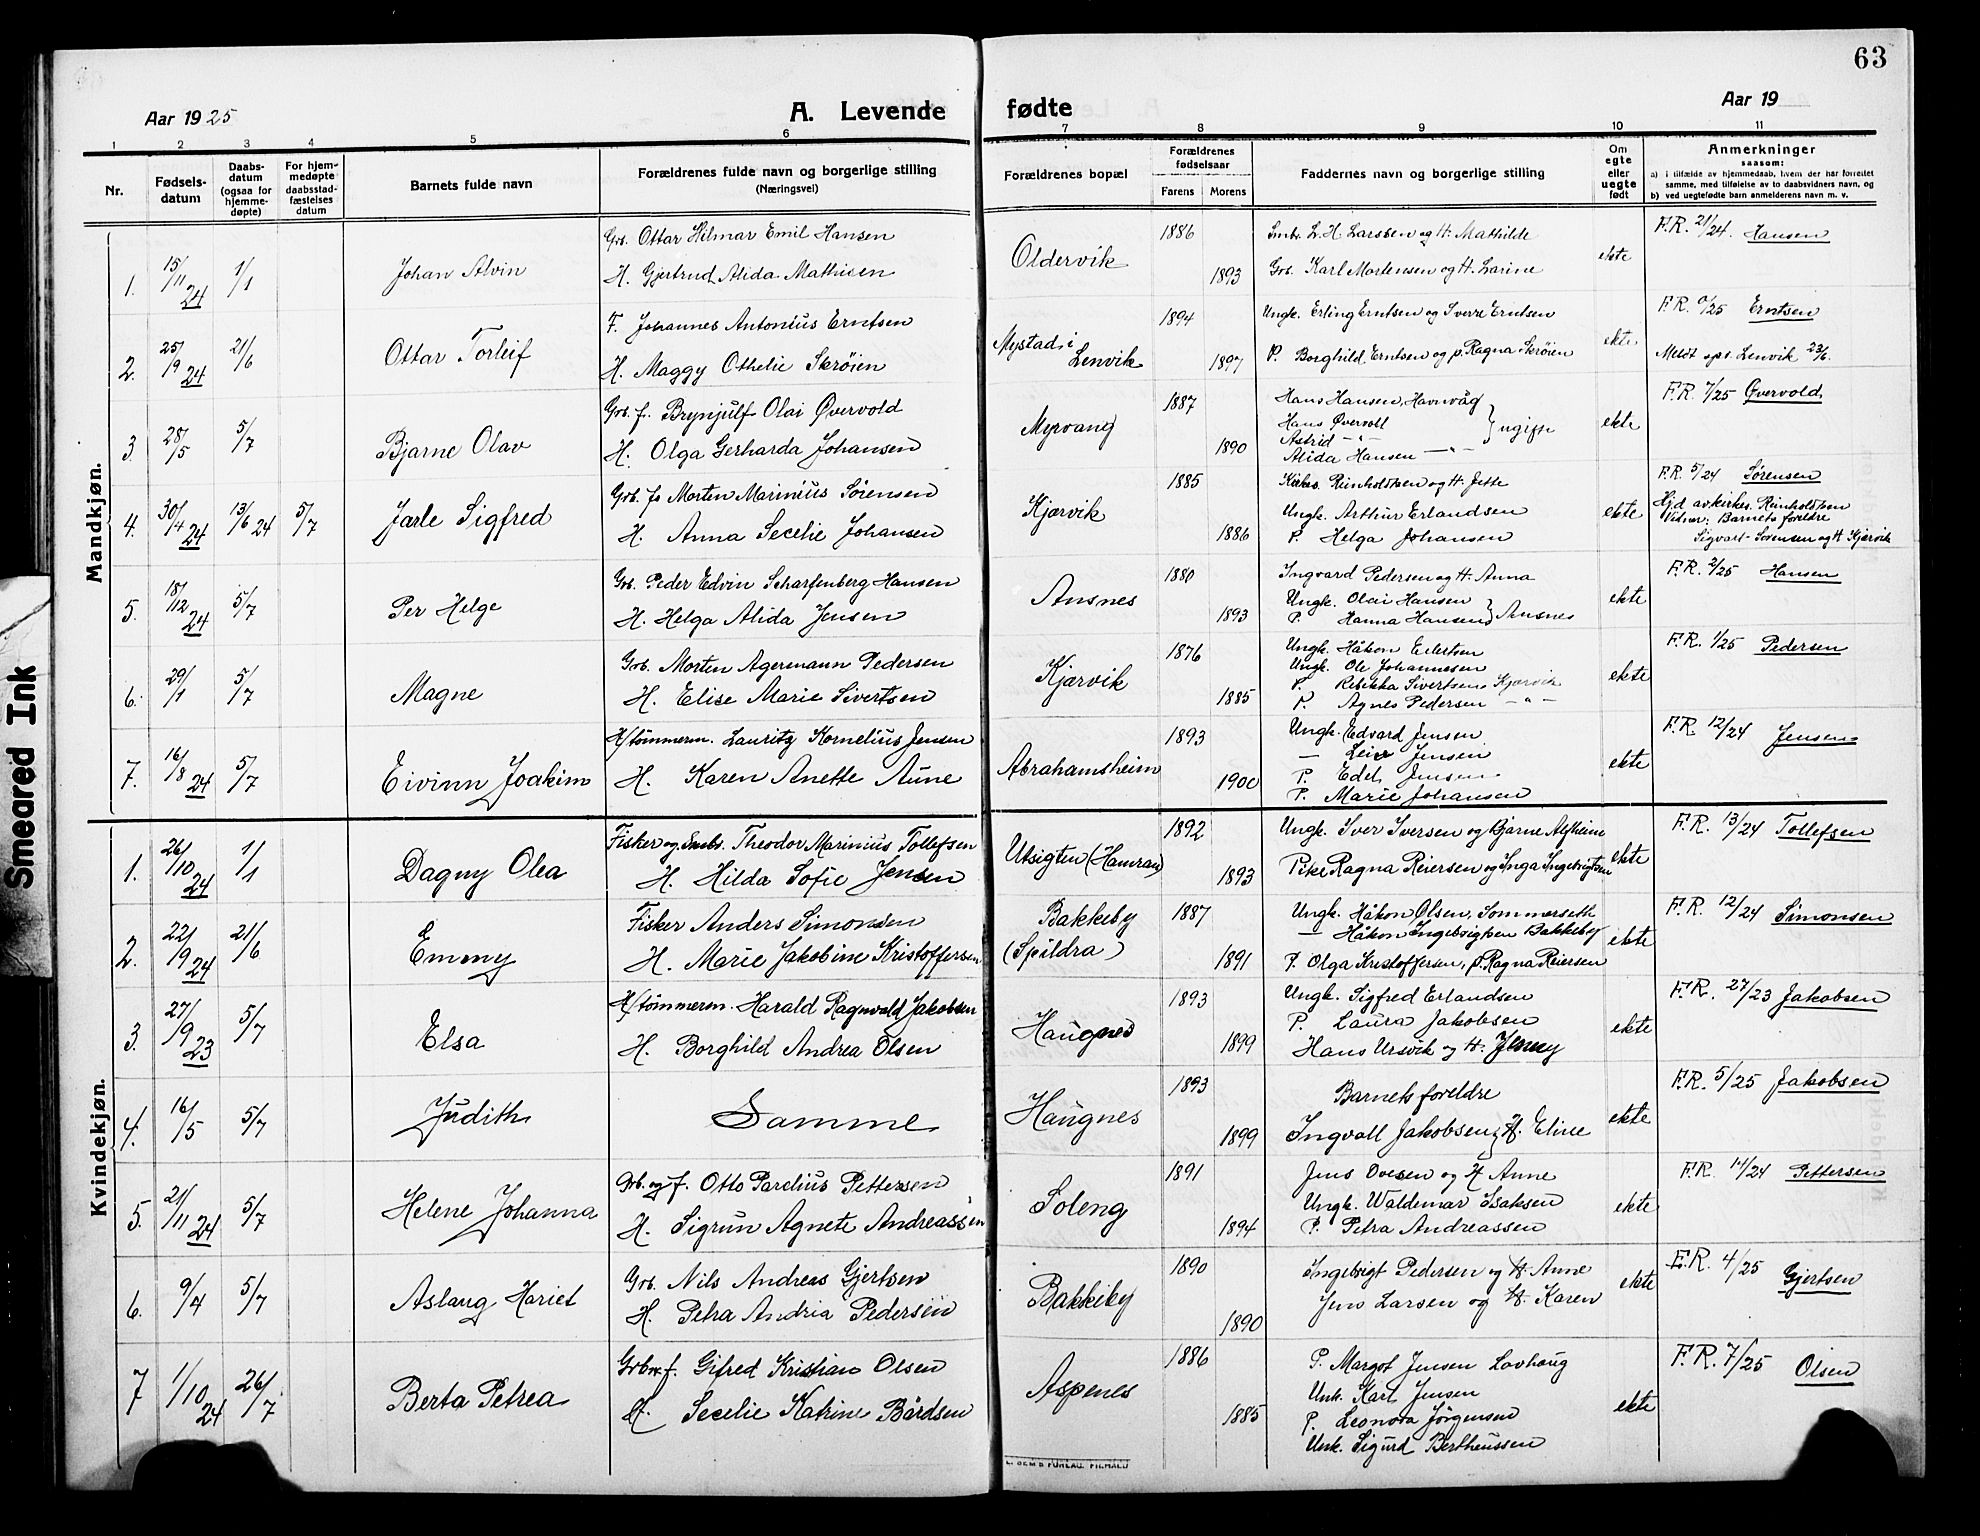 63
Aar 1925
A. Levende fødte
Aar 19
1 2 3 4 5 6 7 8 9 10 11
Nr.
Fødsels-
datum
Daabs-
datum
(ogsaa for
hjemme-
døpte)
For hjem-
medøpte
daabsstad-
fæstelses
datum
Barnets fulde navn
Forældrenes fulde navn og borgerlige stilling
(Næringsvei)
Forældrenes bopæl
Forældrenes
fødselsaar
Farens Morens
Faddernes navn og borgerlige stilling
Om
egte
eller
uegte
født
Anmerkninger
saasom:
a) i tilfælde av hjemmedaab, hvem der har forrettet
samme, med tilføielse av to daabsvidners navn, og
b) ved uegtefødte barn anmelderens navn m. v.
Mandkjøn.
1. 15/11 24 1/1 Johan Alvin
Grb. Ottar Hilmar Emil Hansen
H. Gjertrud Alida Mathisen
Oldervik 1886 1893
Smbr. L. H. Larssen og H. Mathilde
Grb. Karl Mortensen og H. Larine
ekte
F.R. 21/24. Hansen
2. 25/9 24 21/6 Ottar Torleif
F. Johannes Antonius Erntsen
H. Maggy Othelie Skrøien
Mystad i
Lenvik
1894 1897
Ungk. Erling Erntsen og Sverre Erntsen
P. Borghild Erntsen og p. Ragna Skrøien
ekte
F.R. /25 Erntsen
Meldt spr. Lenvik 23/6.
3. 28/5 5/7 Bjarne Olav
Grb. f. Brynjulf Olai Øvervold
H. Olga Gerharda Johansen
Myrvang 1887 1890
Hans Hansen, Havnvåg
Hans Øvervoll
Astrid — " —
Alida Hansen — " —
} ugifte
ekte
F.R. 7/25 Øvervold
4. 30/4 24 13/6 24 5/7 Jarle Sigfred
Grb. f. Morten Marinius Sørensen
H. Anna Secelie Johansen
Kjærvik 1885 1886
Kirkes. Reinholdtsen og H. Jette
Ungk. Arthur Erlandsen
P. Helga Johansen
ekte
F.R. 5/24 Sørensen
Hj.d. av kirkes. Reinholdtsen
Vidner: Barnets foreldre
Sigvart Sørensen og H Kjærvik
5. 18/12 24 5/7 Per Helge
Grb. Peder Edvin Scharfenberg Hansen
H. Helga Alida Jensen
Ansnes 1880 1893
Ingvard Pedersen og H. Anna
Ungk. Olai Hansen
P. Hanna Hansen } Ansnes
ekte
F.R. 2/25 Hansen
6. 29/1 5/7 Magne
Grb. Morten Agermann Pedersen
H. Elise Marie Sivertsen
Kjærvik 1876 1885
Ungk. Håkon Eilertsen
Ungk. Ole Johannesen
P. Rebekka Sivertsen Kjærvik
P. Agnes Pedersen — " —
ekte
F.R. 1/25 Pedersen
7. 16/8 24 5/7 Eivinn Joakim
H/tømmerm. Lauritz Kornelius Jensen
H. Karen Anette Aune
Abrahamsheim 1893 1900
Ungk. Edvard Jensen
— Leiv Jensen
P. Edel Jensen
P. Marie Johansen
ekte
F.R. 12/24 Jensen
Kvindekjøn.
1. 26/10 24 1/1 Dagny Olea
Fisker og Smbr. Theodor Marinius Tollefsen
H. Hilda Sofie Jensen
Utsigten (Hamran) 1892 1893
Ungk. Iver Iversen og Bjarne Alfheim
Pike Ragna Reiersen og Inga Ingebrigtsen
ekte
F.R. 13/24 Tollefsen
2. 22/9 24 21/6 Emmy
Fisker Anders Simonsen
H. Marie Jakobine Kristoffersen
Bakkeby
(Spildra)
1887 1891
Ungk. Håkon Olsen, Sommerseth
— Håkon Ingebrigtsen Bakkeby
P. Olga Kristoffersen, p. Ragna Reiersen
ekte
F.R. 12/24 Simonsen
3. 27/9 23 5/7 Elsa
H/tømmerm. Harald Ragnvald Jakobsen
H. Borghild Andrea Olsen
Haugnes 1893 1899
Ungk. Sigfred Erlandsen
P. Laura Jakobsen
Hans Ursvik og H. Jenny
ekte
F.R. 27/23 Jakobsen
4. 16/5 5/7 Judith
Samme
Haugnes 1893 1899
Barnets foreldre
Ingvall Jakobsen, H. Eline
ekte
F.R. 5/25 Jakobsen
5. 21/11 24 5/7 Helene Johanna
Grb. og f. Otto Parelius Pettersen
H. Sigrun Agnete Andreassen
Soleng 1891 1894
Jens Ovesen og H Anne
Ungk. Waldemar Isaksen
P. Petra Andreassen
ekte
F.R. 14/24 Pettersen
6. 9/4 5/7 Aslaug Hariet
Grb. Nils Andreas Gjertsen
H. Petra Andria Pedersen
Bakkeby 1890 1890
Ingebrigt Pedersen og H. Anne
Jens Larsen og H. Karen
ekte
F.R. 4/25 Gjertsen
7 1/10 24 26/7 Berta Petrea
Grb. f. Gifred Kristian Olsen
H. Secelie Katrine Bårdsen
Aspenes 1886 1885
P. Margot Jensen Lavhaug
Unk. Karl Jensen
P. Leonora Jørgensen
Unk. Sigurd Bertheussen
ekte
F.R. 7/25 Olsen
Smeared Ink